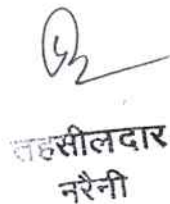 तहसीलदार
नरैनी